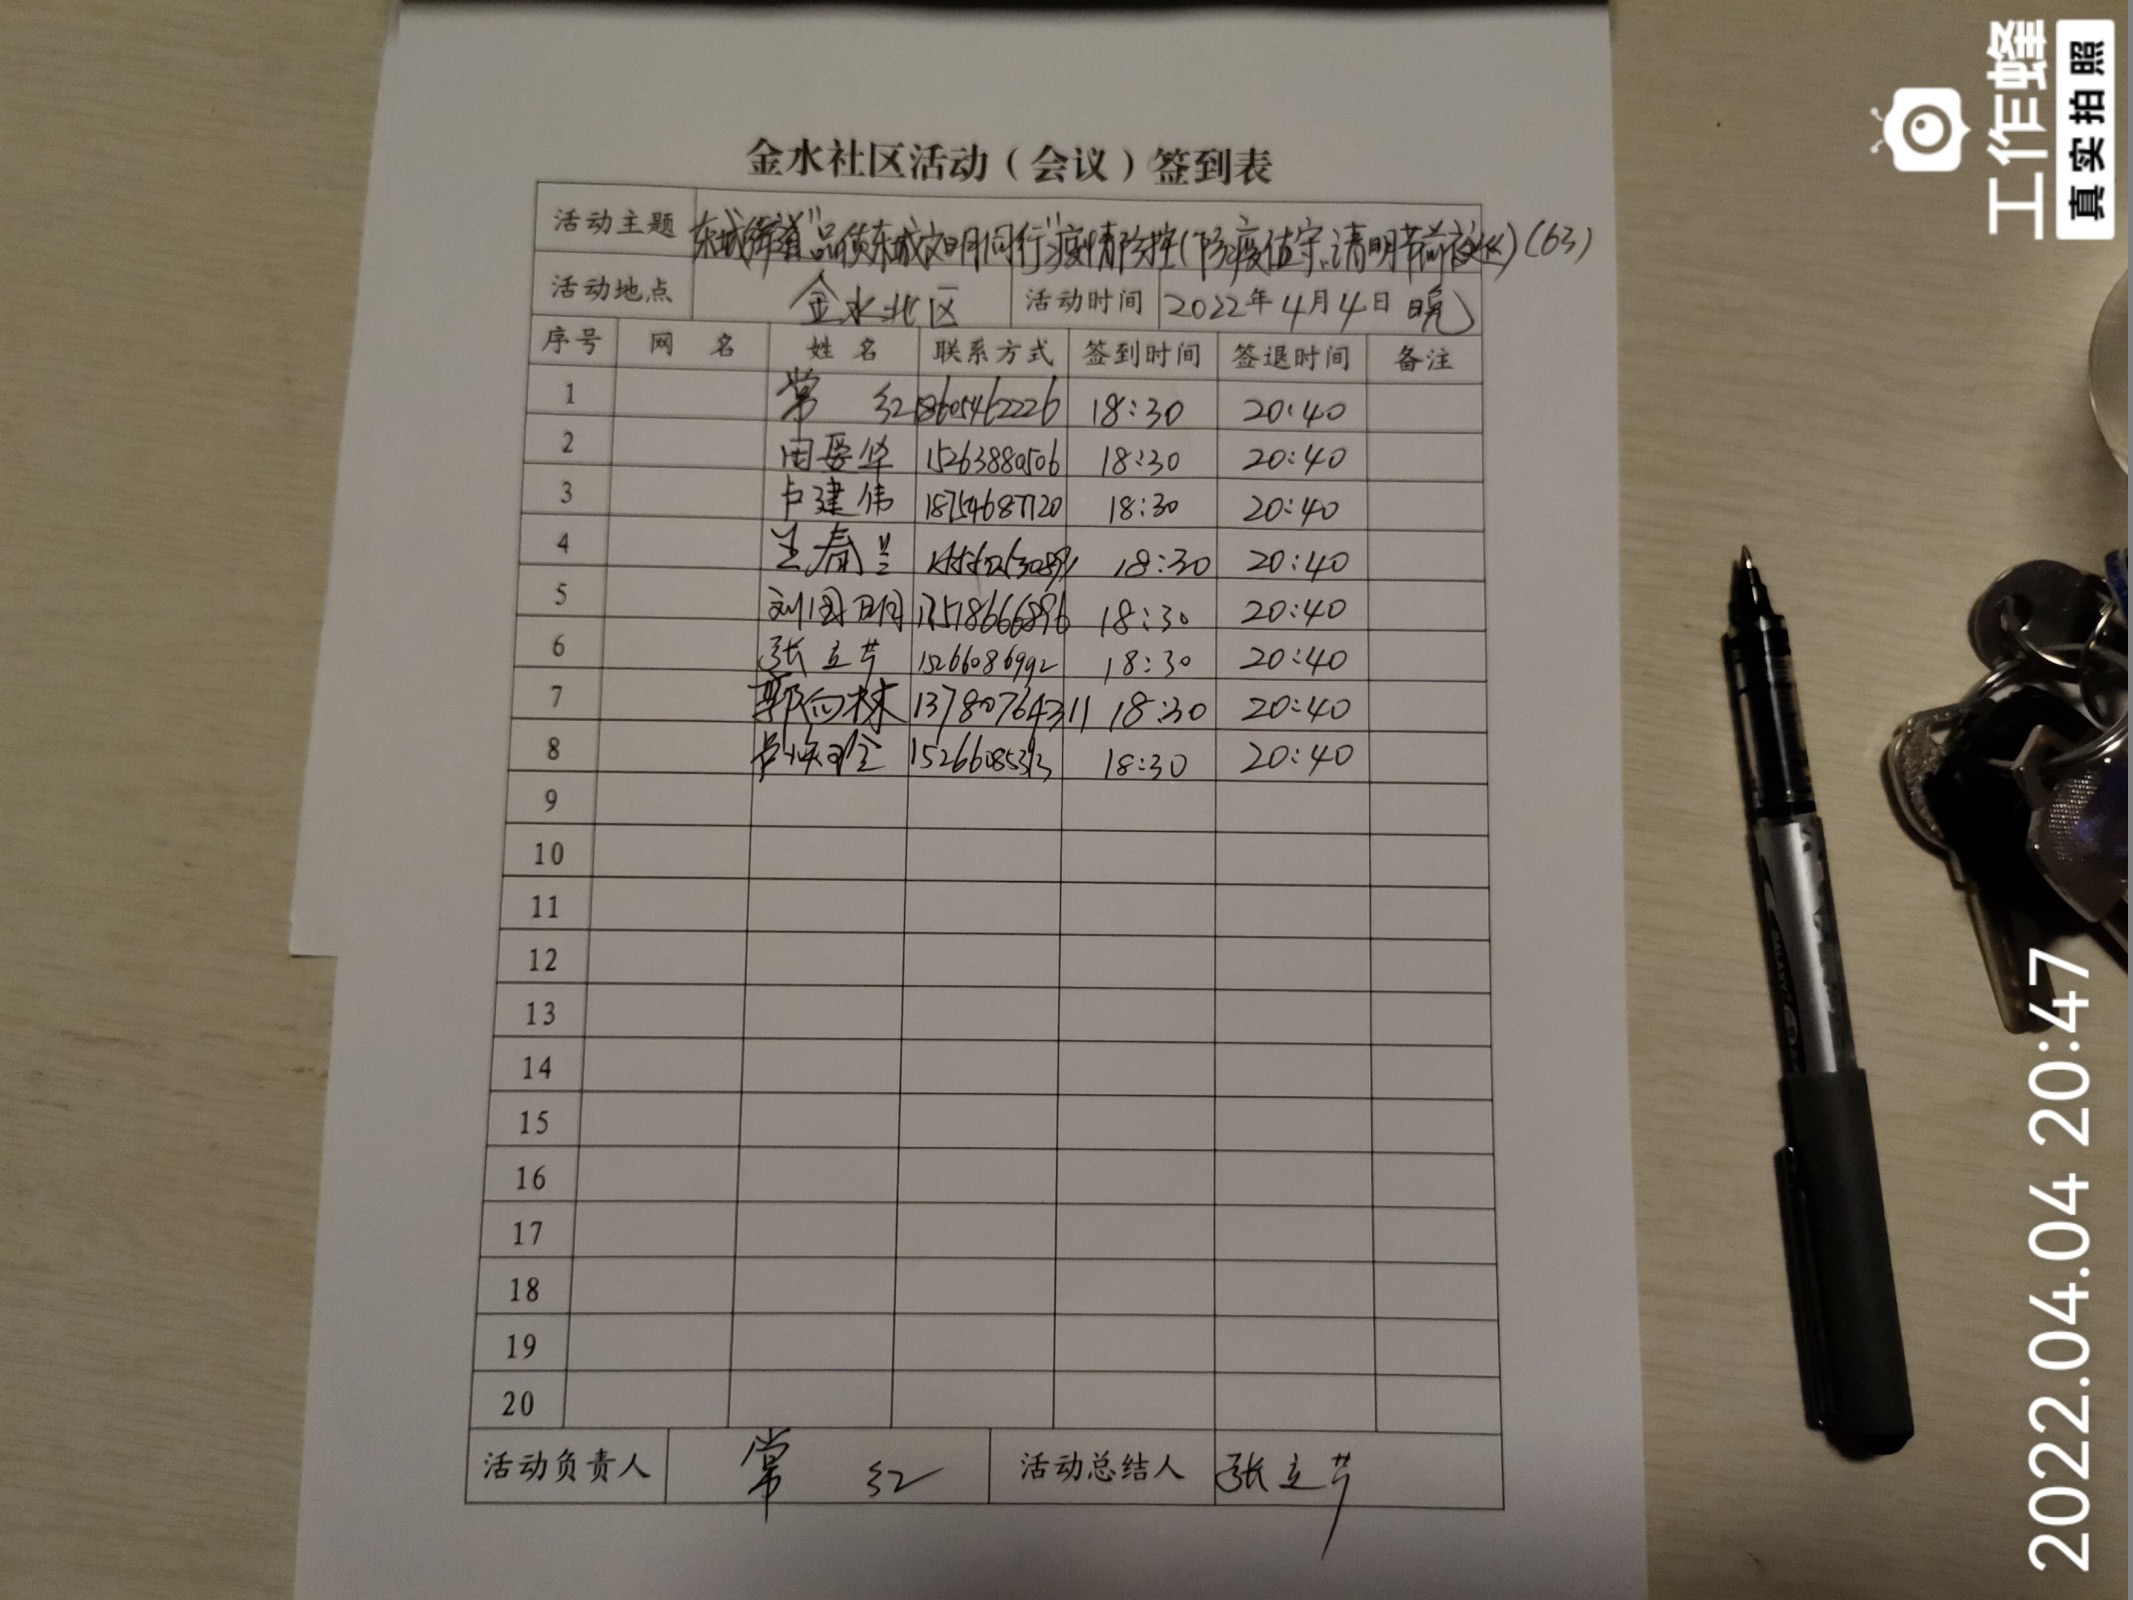 金水社区活动（会议）签到表
活动主题 东城街道"品质东城文明同行"疫情防控(防疫值守、清明节前夜巡)(63)
活动地点 金水北区 活动时间 2022年4月4日 晚
序号 网 名 姓 名 联系方式 签到时间 签退时间 备注
1 常 红 18605462226 18:30 20:40
2 华 15263880506 18:30 20:40
3 卢建伟 18754687120 18:30 20:40
4 王春兰 18:30 20:40
5 刘国明 18:30 20:40
6 张立芹 15266086992 18:30 20:40
7 郭向林 13780764311 18:30 20:40
8 18:30 20:40
9
10
11
12
13
14
15
16
17
18
19
20
活动负责人 常 红 活动总结人 张立芹
工作蜂
真实拍照
2022.04.04 20:47